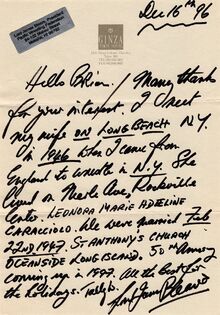 Dec 16th 96
GINZA
Hello Brian! Many thanks
for your interest. I met
my wife ON LONG BEACH N.Y.
in 1946 when I came from
England to wrestle in N.Y. She
lived on Merle Ave, Rockville
Center. LEONORA MARIE ADELINE
CARACCIOLO. We were married Feb
22nd 1947. ST ANTHONYS CHURCH
OCEANSIDE LONG ISLAND. 50th Annivy
coming up in 1997. All the best for
the holidays.